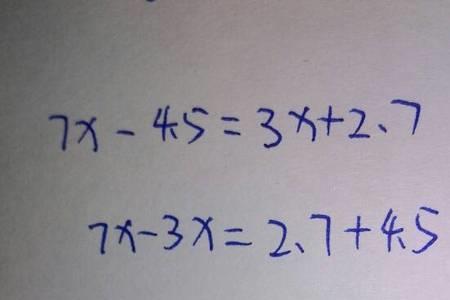 7x-4.5=3x+2.7
7x-3x=2.7+4.5